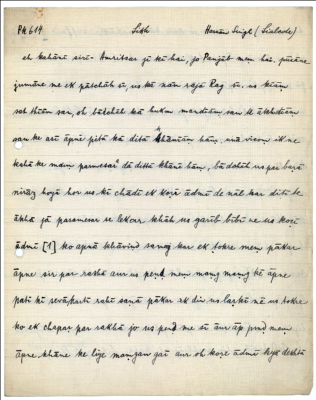 PK 619 Sikh Herrām Singh (Sialcole)
eh kahānī sirī- Amritsar jī kī hai, jo Panjāb mem hai. purāne
jumāne me ek pātchāh sī, us kā nām rāja Rag sī. us kīām
sat thīām san, oh bātchāh kā hukm
san ke asī āpne pitā kā ditā khāndīām hām. unā vicom ik ne
kahā ke maim parmesar dā dittā khānī hām, bādchāh us pai barā
nirāz hoyā hor us kī chādī ek kojē ādmī de nāl kar ditī te
ākhā jā paramesar se lekar khāh us garīb bībī ne us kojē
ādmī [1] ko apnā khāvind samaj kar ek tokre mem pākar
āpne sir par rakhā aur us pend mem mang mang kē āpne
pati kī sevā kartī rahī pākar ek din us larkī nē us tokre
ko ek chapar par rakhā jo us pend me sī aur āp pend mem
āpne khāne ke lije mangan gaī aur oh kojē ādmī kyā dekhtā